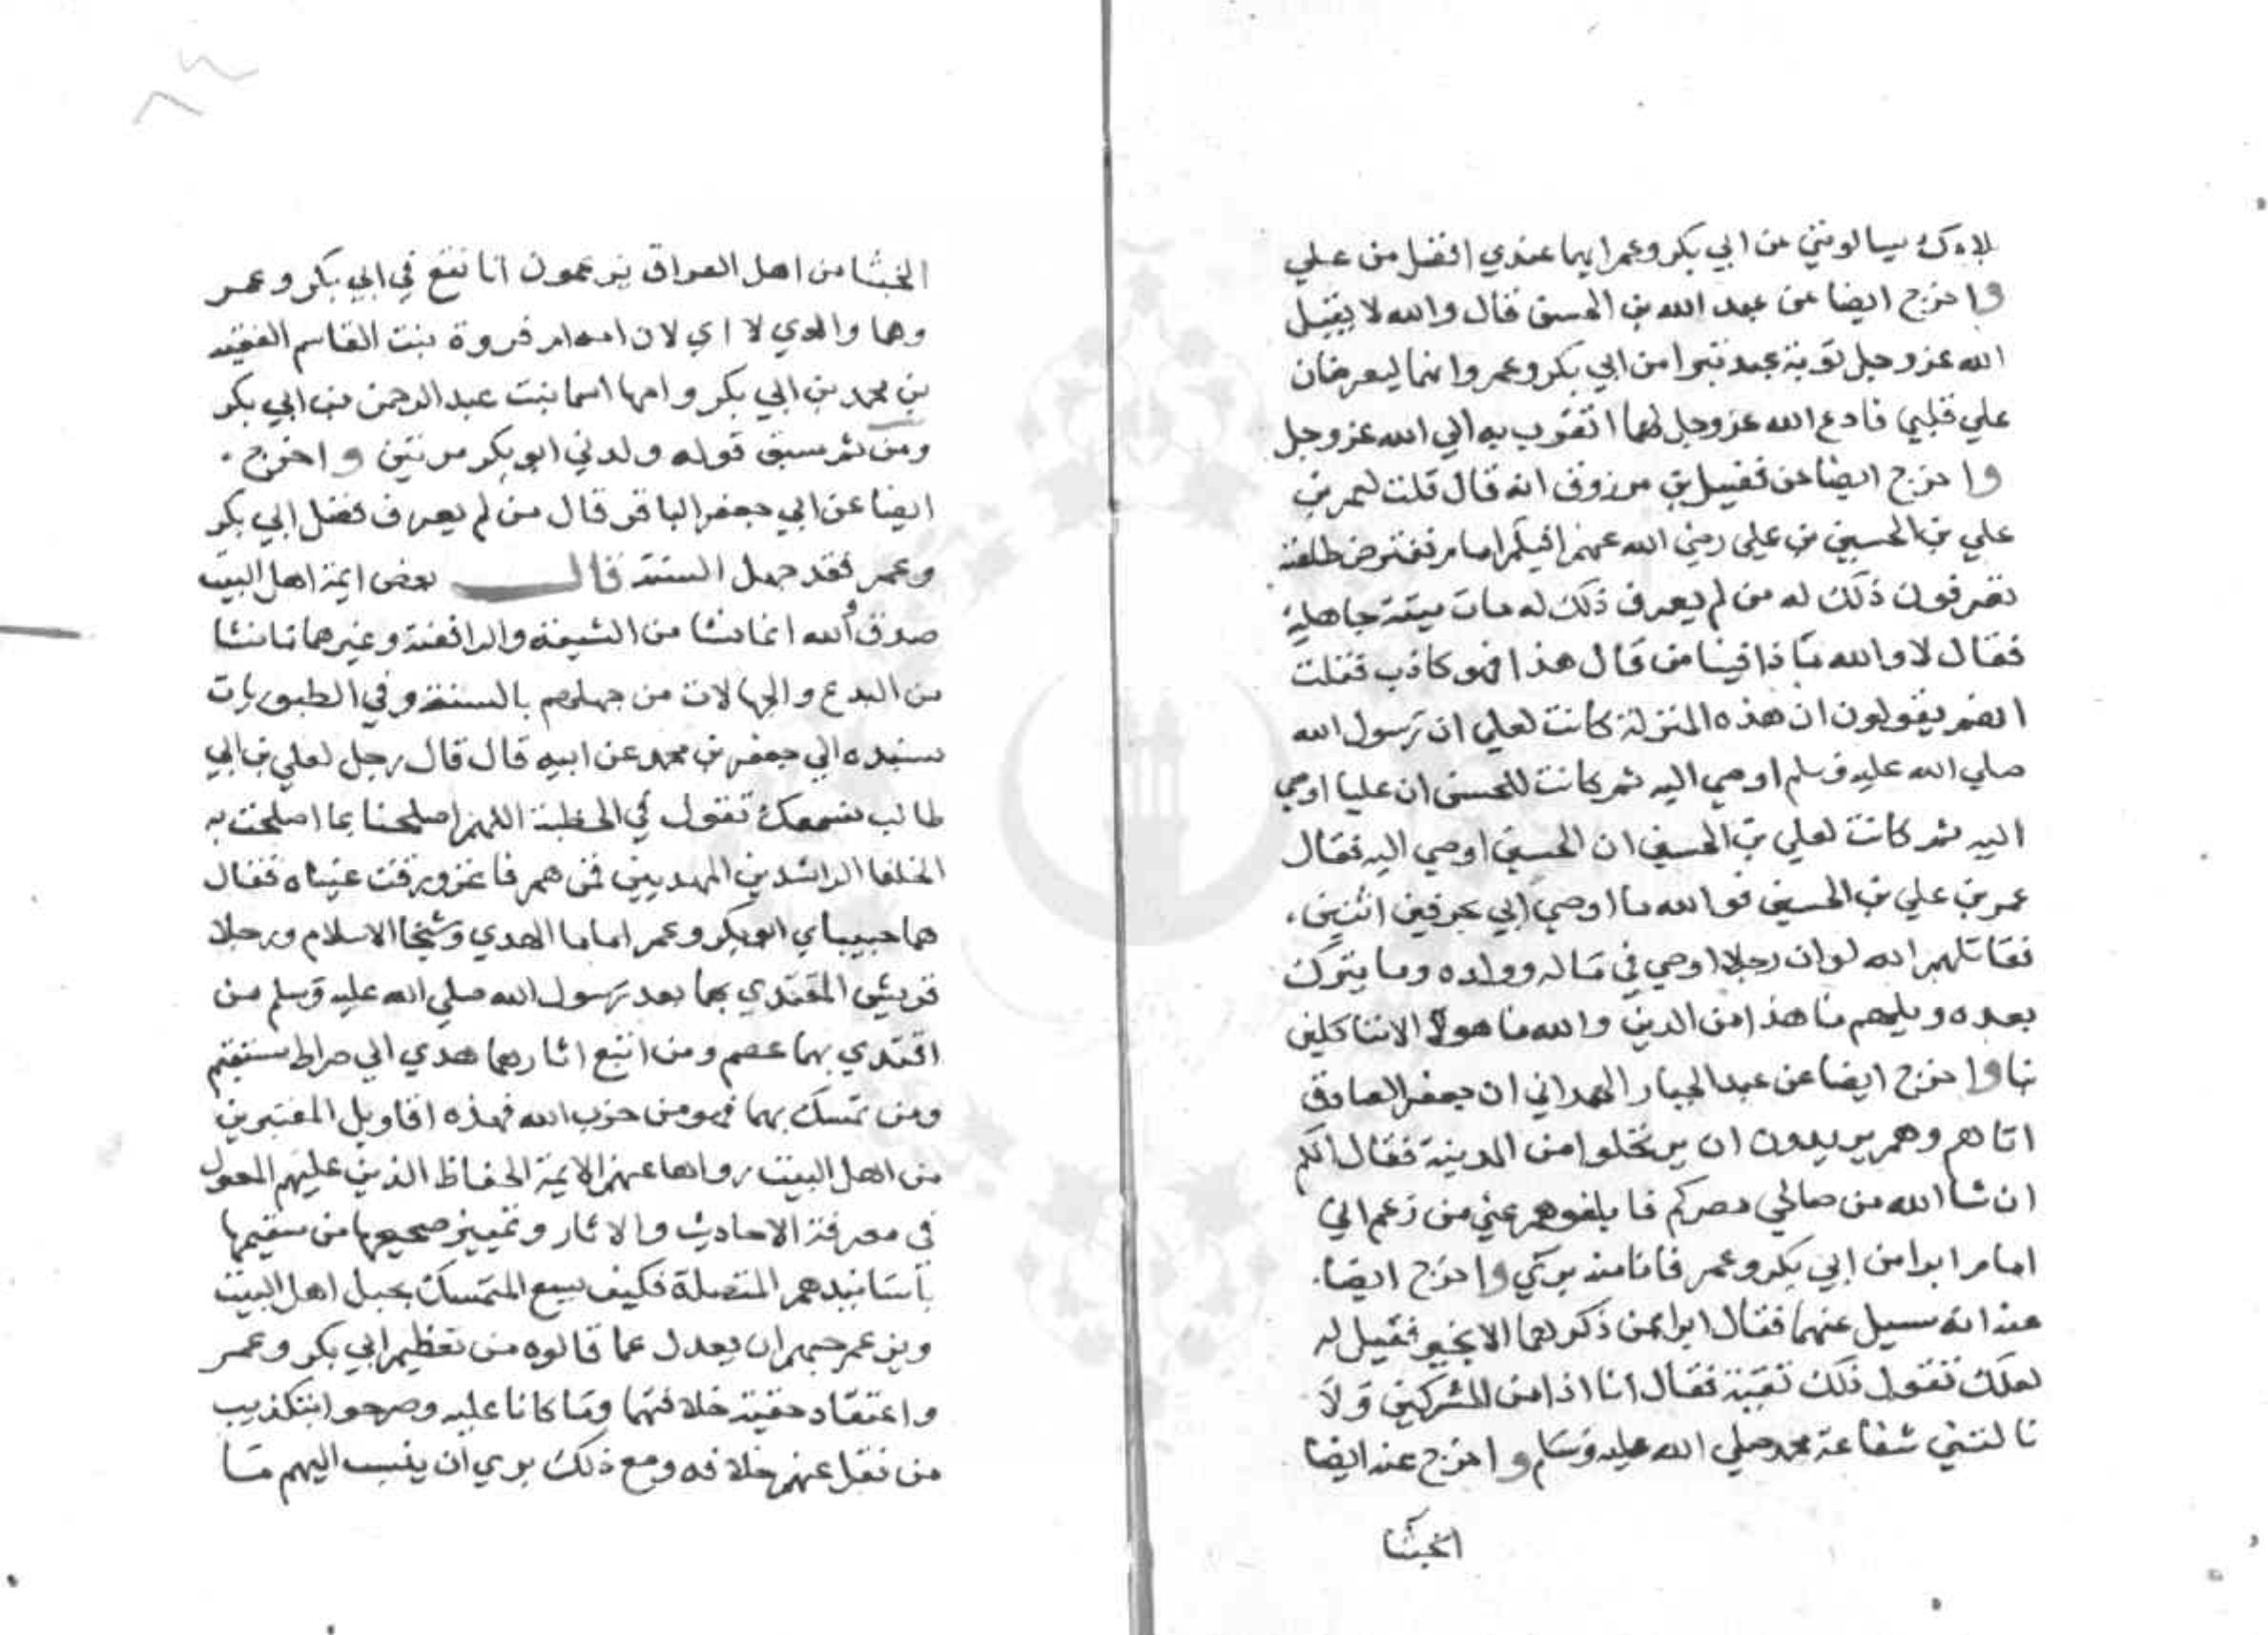 بلادك يسالونني عن ابي بكر وعمر ايهما عندي افضل من علي
واخرج ايضا عن عبد الله بن الحسن قال والله لا يقبل
الله عز وجل توبة عبد تبرا من ابي بكر وعمر وانهما ليعرضان
علي قلبي فادع الله عز وجل لهما اتقرب به الي الله عز وجل
واخرج ايضا عن فضيل بن مرزوق انه قال قلت لعمر بن
علي بن الحسين بن علي رضي الله عنهم افيكم امام تفترض طاعته
تعرفون ذلك له من لم يعرف ذلك له مات ميتة جاهلية
فقال لا والله ما ذا فينا من قال هذا فهو كاذب فقلت
انهم يقولون ان هذه المنزلة كانت لعلي ان رسول الله
صلي الله عليه وسلم اوصي اليه ثم كانت للحسن ان عليا اوصي
اليه ثم كانت لعلي بن الحسين ان الحسين اوصي اليه فقال
عمر بن علي بن الحسين فوالله ما اوصي ابي بحرفين اثنين
فقاتلهم الله لو ان رجلا اوصي في ماله وولده وما يترك
بعده ويلهم ما هذا من الدين والله ما هولا الا متاكلين
بنا واخرج ايضا عن عبد الجبار الهمداني ان جعفر الصادق
اتاهم وهم يريدون ان يرتحلوا من المدينة فقال انكم
ان شا الله من صالحي مصركم فابلغوهم عني من زعم اني
امام ابرا من ابي بكر وعمر فانا منه بري واخرج ايضا
عنه انه سيل عنهما فقال ابرا ممن ذكرهما الا بخير فقيل له
لعلك تقول ذلك تقية فقال انا اذا من المشركين ولا
نالتني شفاعة محمد صلي الله عليه وسلم واخرج عنه ايضا
الخبثا
الخبثا من اهل العراق يزعمون انا نقع في ابي بكر وعمر
وهما والدي لا اي لان امه ام فروة بنت القاسم الفقيه
بن محمد بن ابي بكر وامها اسما بنت عبد الرحمن بن ابي بكر
ومن ثم سبق قوله ولدني ابو بكر مرتين واخرج
ايضا عن ابي جعفر الباقر قال من لم يعرف فضل ابي بكر
وعمر فقد جهل السنة قال بعض ايمة اهل البيت
صدق والله انما نشا من الشيعة والرافضة وغيرهما ما نشا
من البدع والجهالات من جهلهم بالسنة وفي الطيوريات
بسنده الي جعفر بن محمد عن ابيه قال قال رجل لعلي بن ابي
طالب نسمعك تقول في الخطبة اللهم اصلحنا بما اصلحت به
الخلفا الراشدين المهديين فمن هم فاغرورقت عيناه فقال
هما حبيباي ابو بكر وعمر اماما الهدي وشيخا الاسلام ورجلا
قريش المقتدي بهما بعد رسول الله صلي الله عليه وسلم من
اقتدي بهما عصم ومن اتبع اثارهما هدي الي صراط مستقيم
ومن تمسك بهما فهو من حزب الله فهذه اقاويل المعتبرين
من اهل البيت رواها عنهم الايمة الحفاظ الذين عليهم المعول
في معرفة الاحاديث والاثار وتمييز صحيحها من سقيمها
باسانيدهم المتصلة فكيف يسع المتمسك بحبل اهل البيت
ويزعم حبهم ان يعدل عما قالوه من تعظيم ابي بكر وعمر
واعتقاد حقية خلافتهما وما كانا عليه وصرحوا بتكذيب
من نقل عنهم خلافه ومع ذلك يري ان ينسب اليهم ما